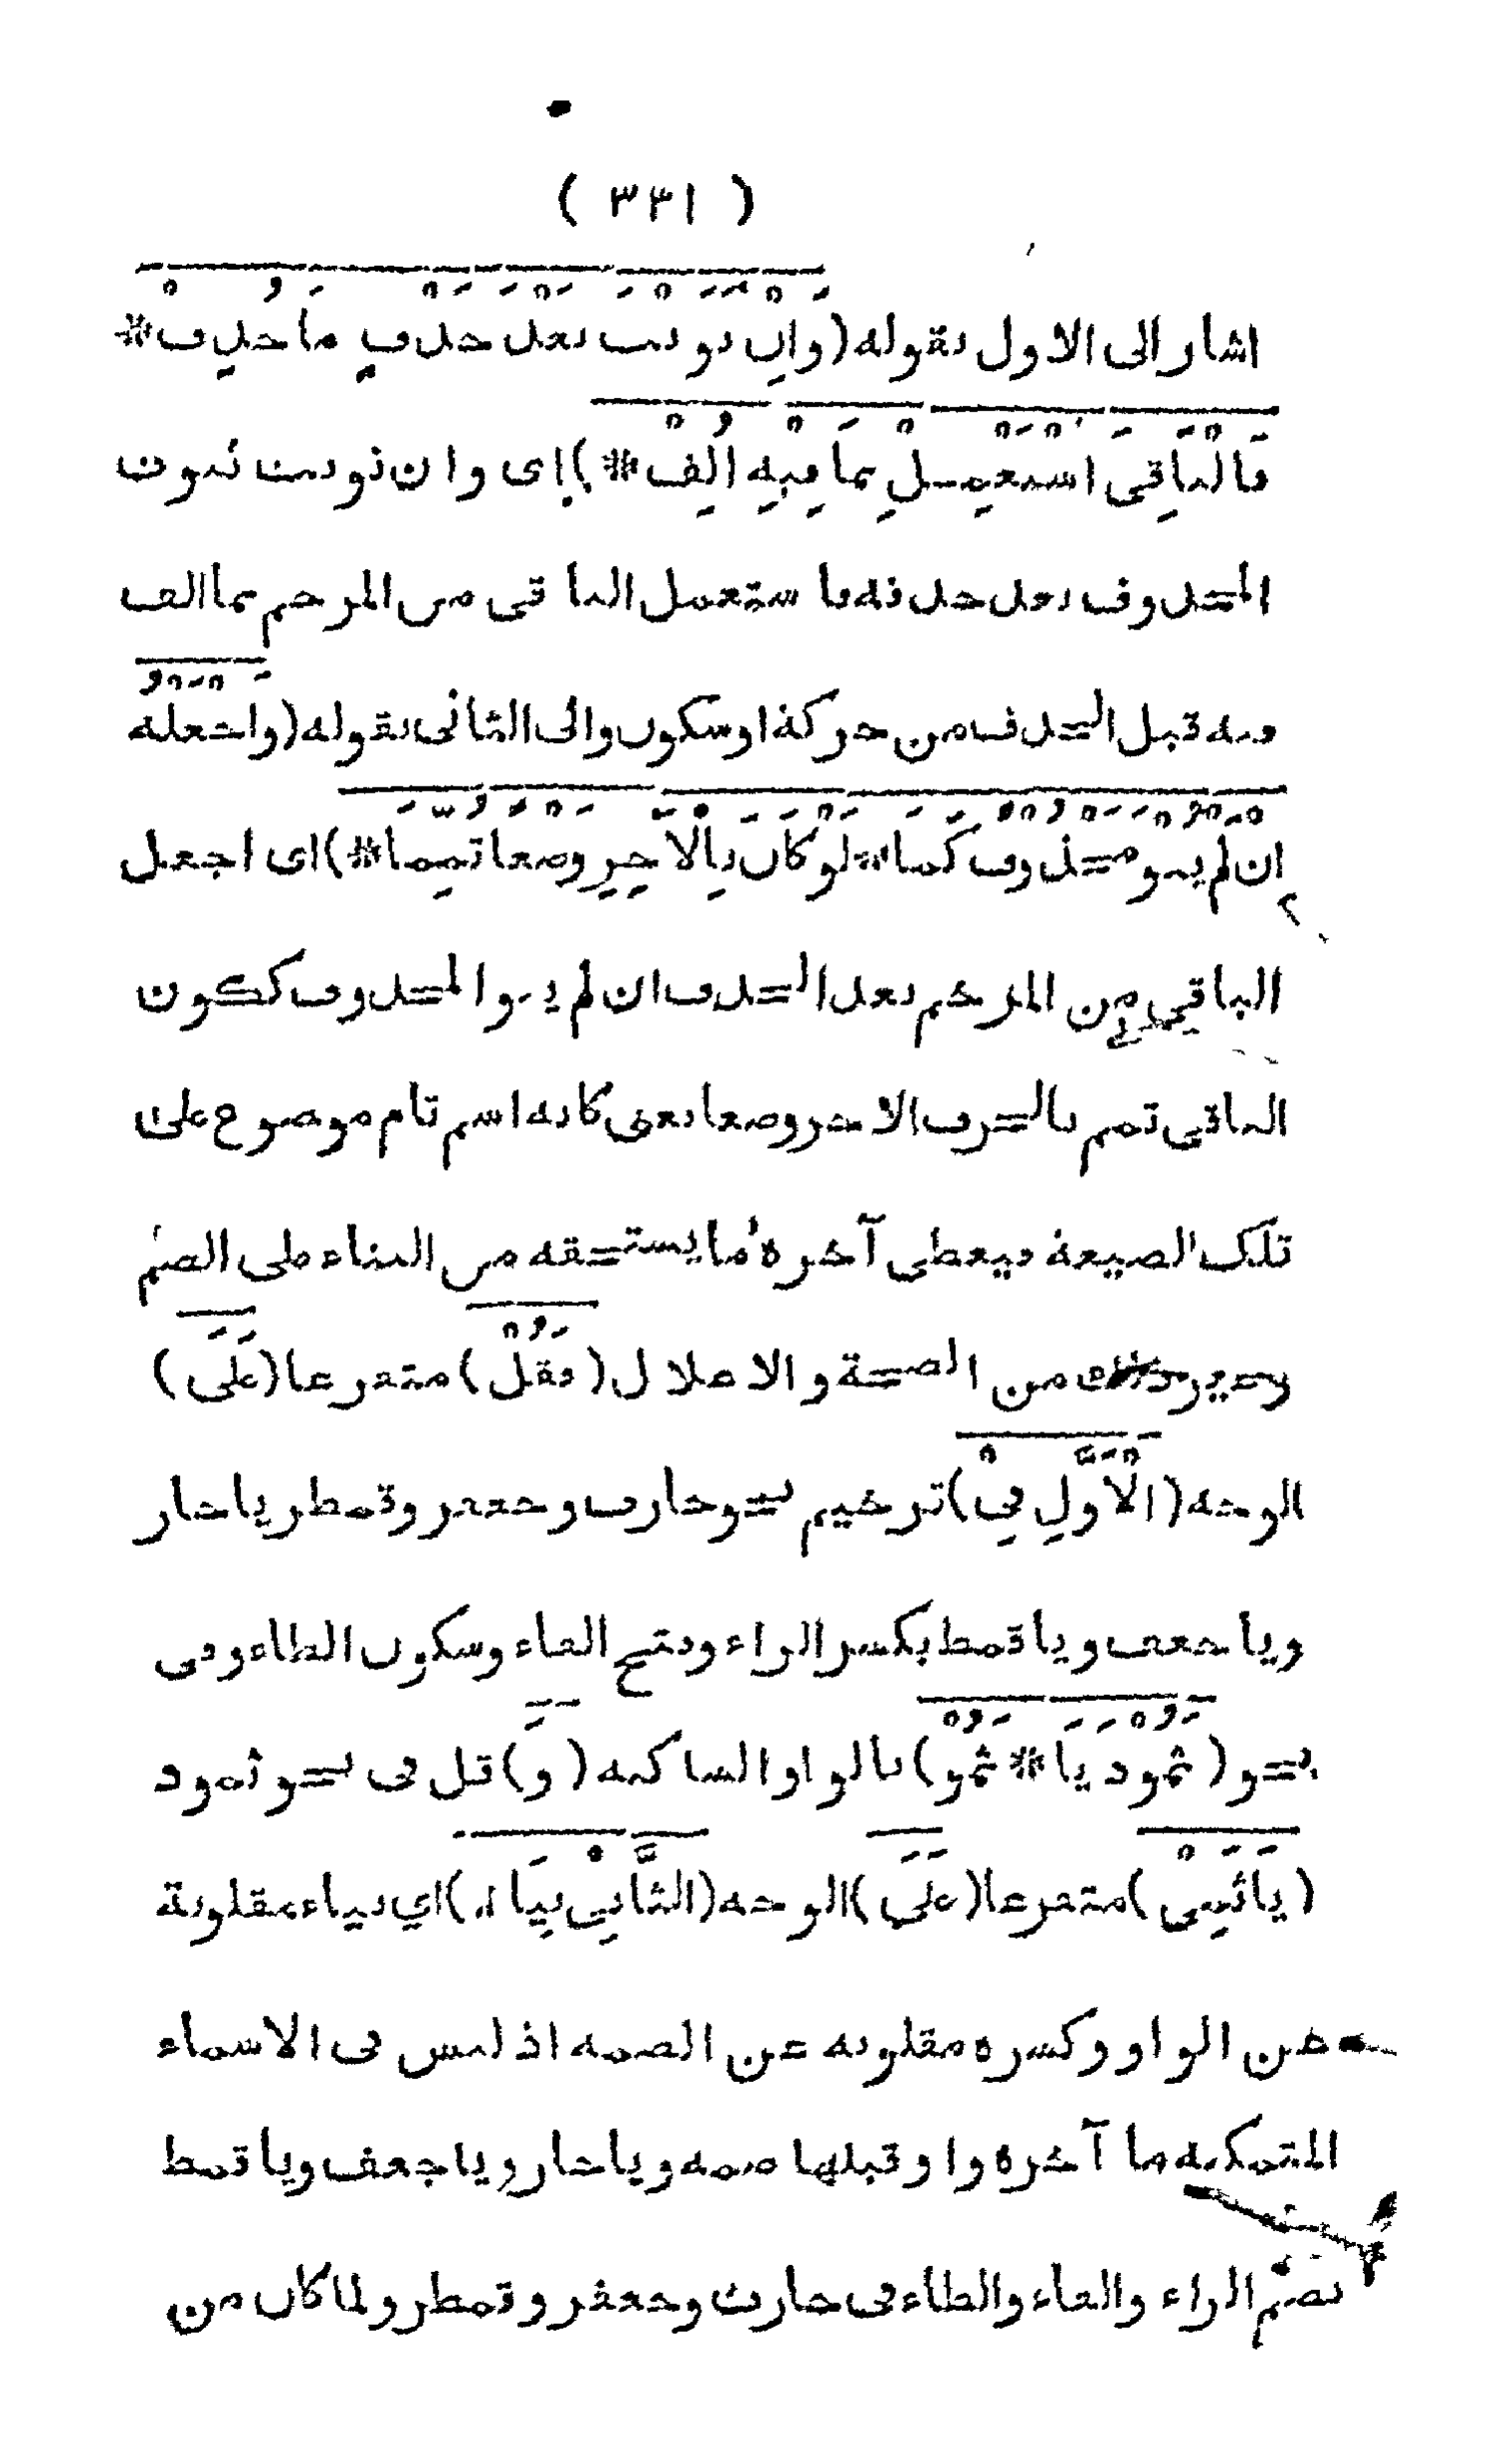 ( ٣٣١ )
اشار الى الاول بقوله (وَاِنْ نَوَيْتَ بَعْدَ حَذْفٍ مَا حُذِفْ *
فَالْبَاقِيَ اسْتَعْمِلْ بِمَا فِيْهِ اُلِفْ *) اى وان نويت ثبوت
المحذوف بعد حذفه فاستعمل الباقى من المرخم بما الف
فيه قبل الحذف من حركة او سكون والى الثانى بقوله (وَاجْعَلْهُ
اِنْ لَمْ يُنْوَ مَحْذُوْفٌ كَمَا * لَوْ كَانَ بِالْآخِرِ وَضْعًا تُمِّمَا *) اى اجعل
الباقي من المرخم بعد الحذف ان لم ينو المحذوف ككون
الباقى تمم بالحرف الاخر وضعا يعنى كانه اسم تام موضوع على
تلك الصيغة فيعطى آخره ما يستحقه من البناء على الضم
وغير ذلك من الصحة والاعلال (فَقُلْ) متفرعا (عَلَى)
الوجه (الْاَوَّلِ فِيْ) ترخيم نحو حارث وجعفر وقمطر يا حار
ويا جعف ويا قمط بكسر الراء وفتح الفاء وسكون الطاء وفى
نحو (ثَمُوْدَ يَا * ثَمُوْ) بالواو الساكنه (وَ) قل فى نحو ثمود
(يَا ثَمِيْ) متفرعا (عَلَى) الوجه (الثَّانِيْ بِيَاء) اي بياء مقلوبة
عن الواو وكسره مقلوبه عن الضمه اذ ليس فى الاسماء
المتمكنه ما آخره واو قبلها ضمه ويا حار ويا جعف ويا قمط
بضم الراء والفاء والطاء فى حارث وجعفر وقمطر ولما كان من